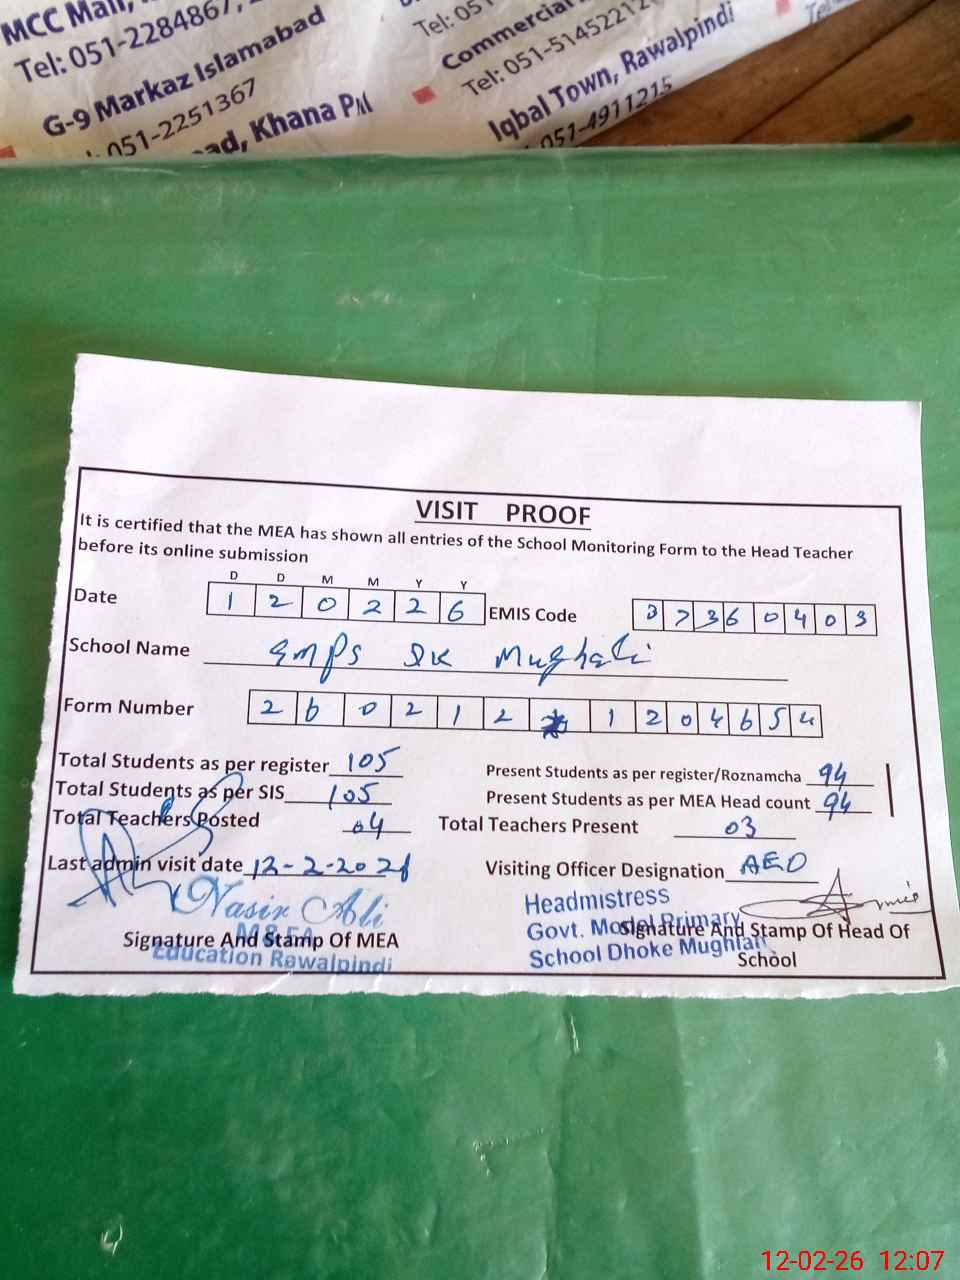 MCC Mall,
Tel: 051-2284867,
G-9 Markaz Islamabad
051-2251367
Khana Pul
Tel: 051
Commercial
Tel: 051-5145221
Iqbal Town, Rawalpindi
051-4911215
VISIT PROOF
It is certified that the MEA has shown all entries of the School Monitoring Form to the Head Teacher
before its online submission
D D M M Y Y
Date 1 2 0 2 2 6 EMIS Code 3 7 3 6 0 4 0 3
School Name GMPS DK Mughali
Form Number 2 6 0 2 1 2 1 2 0 4 6 5 4
Total Students as per register 105 Present Students as per register/Roznamcha 94
Total Students as per SIS 105 Present Students as per MEA Head count 94
Total Teachers Posted 04 Total Teachers Present 03
Last admin visit date 12-2-2026 Visiting Officer Designation AEO
Nasir Ali
M&EA
Education Rawalpindi
Signature And Stamp Of MEA
Headmistress
Govt. Model Primary
School Dhoke Mughlan
Signature And Stamp Of Head Of
School
12-02-26 12:07